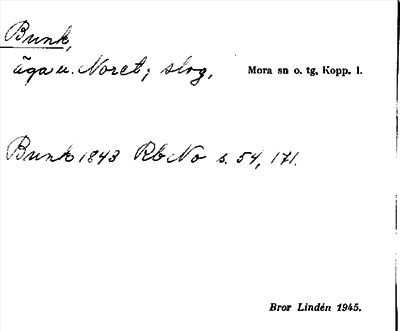 Bunk,
äga u. Noret; skog, Mora sn o. tg, Kopp. l.
Bunk 1843 Rb No s. 54, 171.
Bror Lindén 1945.